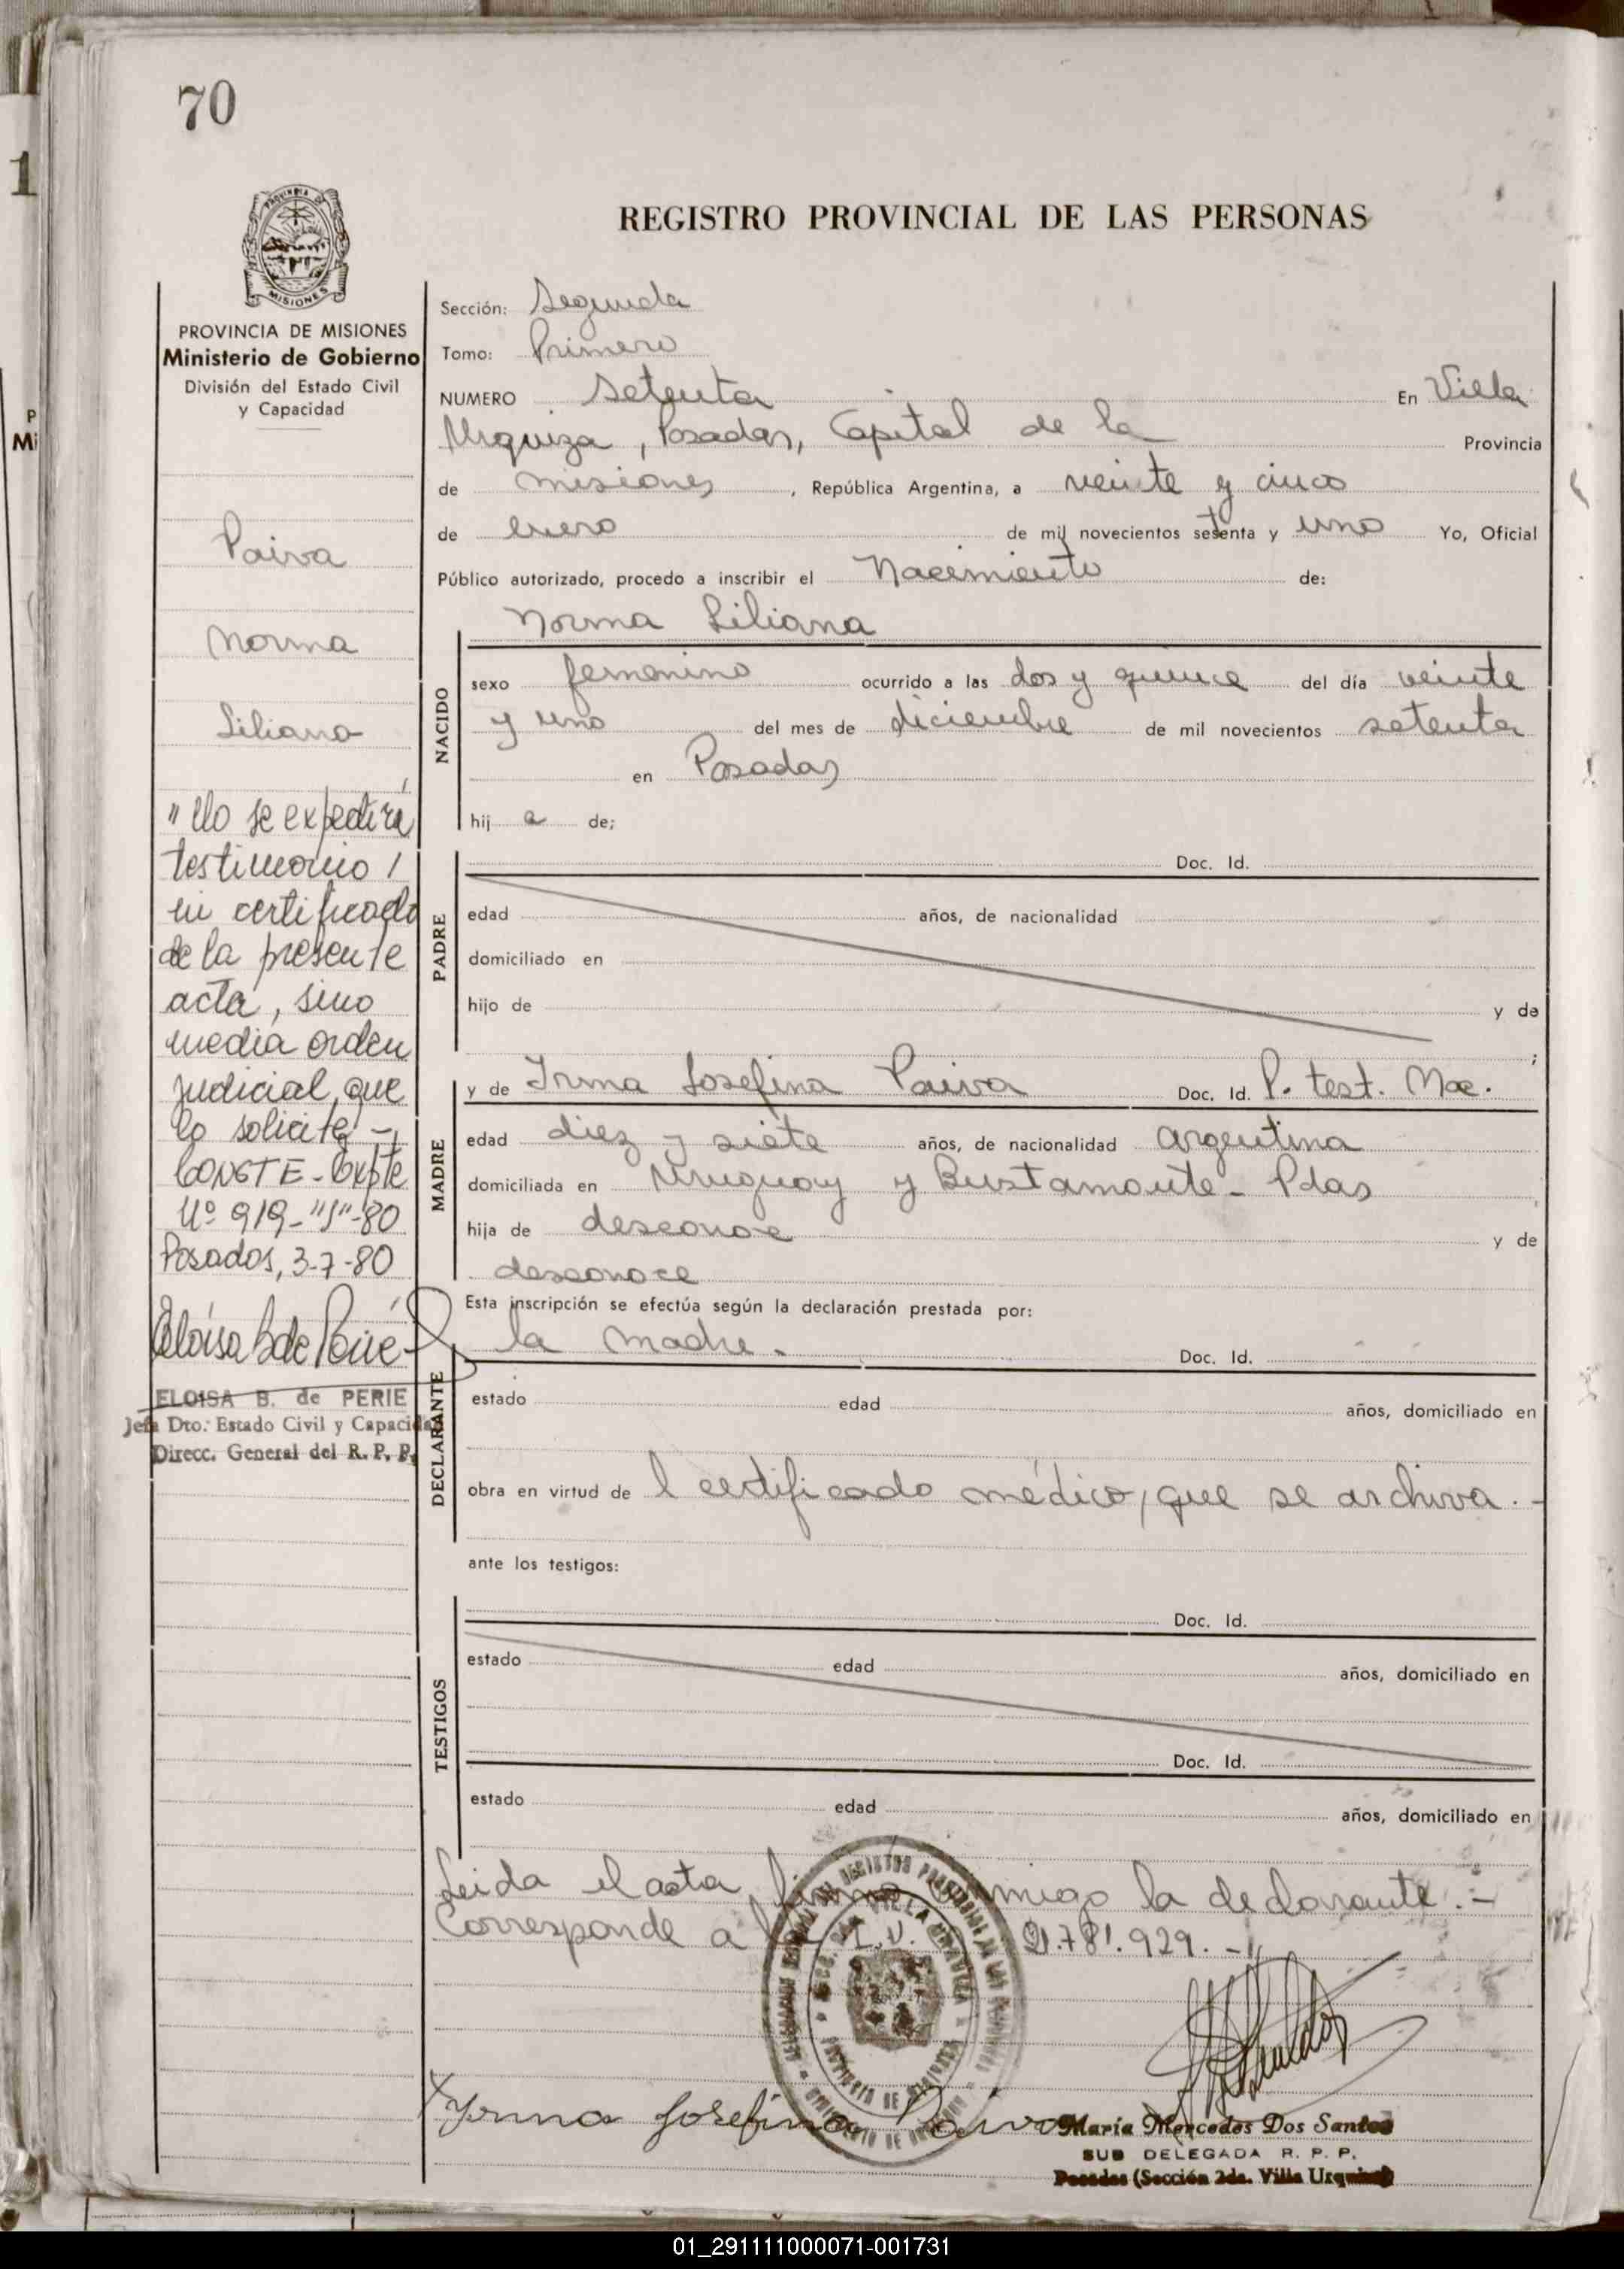 70
REGISTRO PROVINCIAL DE LAS PERSONAS
MISIONES
PROVINCIA DE MISIONES
Ministerio de Gobierno
División del Estado Civil
y Capacidad
Paiva
Norma
Liliana
"No se expedirá
testimonio /
ni certificado
de la presente
acta, sino
media orden
judicial, que
lo solicite -,
CONSTE - Expte
Nº 919-"S"-80
Posadas, 3-7-80
Eloisa B de Perié
ELOISA B. de PERIE
Jefa Dto. Estado Civil y Capacidad
Direcc. General del R. P. P.
Sección: Segunda
Tomo: Primero
NUMERO setenta En Villa
Urquiza, Posadas, Capital de la Provincia
de misiones, República Argentina, a veinte y cinco
de enero de mil novecientos setenta y uno Yo, Oficial
Público autorizado, procedo a inscribir el Nacimiento de:
Norma Liliana
NACIDO
sexo femenino ocurrido a las dos y quince del día veinte
y uno del mes de diciembre de mil novecientos setenta
en Posadas
hij a de;
PADRE
Doc. Id.
edad años, de nacionalidad
domiciliado en
hijo de y de
;
MADRE
y de Irma Josefina Paiva Doc. Id. P. test. Nac.
edad diez y siete años, de nacionalidad argentina
domiciliada en Uruguay y Bustamante - Pdas
hija de desconoce y de
desconoce
Esta inscripción se efectúa según la declaración prestada por:
DECLARANTE
la madre. Doc. Id.
estado edad años, domiciliado en
obra en virtud de l certificado médico, que se archiva. -
ante los testigos:
TESTIGOS
Doc. Id.
estado edad años, domiciliado en
Doc. Id.
estado edad años, domiciliado en
Leida el acta, firma conmigo la declarante. -
Corresponde a la I.D. 21.781.929. -
Yrma Josefina Paiva
María Mercedes Dos Santos
SUB DELEGADA R. P. P.
Posadas (Sección 2da. Villa Urquiza)
01_291111000071-001731